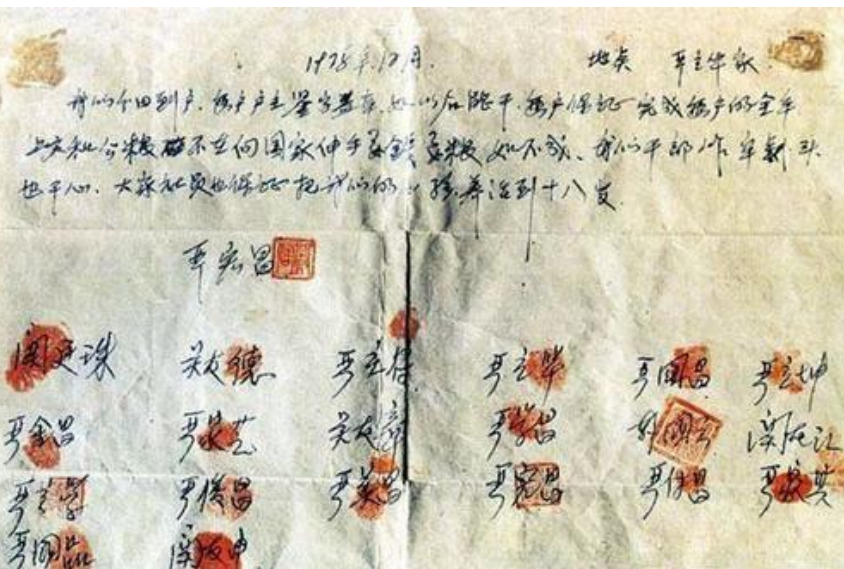 1978年12月. 地点 严立华家.
我们分田到户.每户户主签字盖章.如以后能干.每户保证完成每户的全年
上交和公粮 不在向国家伸手要钱要粮 如不成.我们干部作牢刹头
也干心.大家社员也保证把我们的小孩养活到十八岁.
严宏昌
关廷珠 关友德 严立符 严立华 严国昌 严立坤
严金昌 严家芝 关友章 严学昌 韩国云 关友江
严立学 严俊昌 严美昌 严宏昌 严付昌 严家其
严国品 关友申